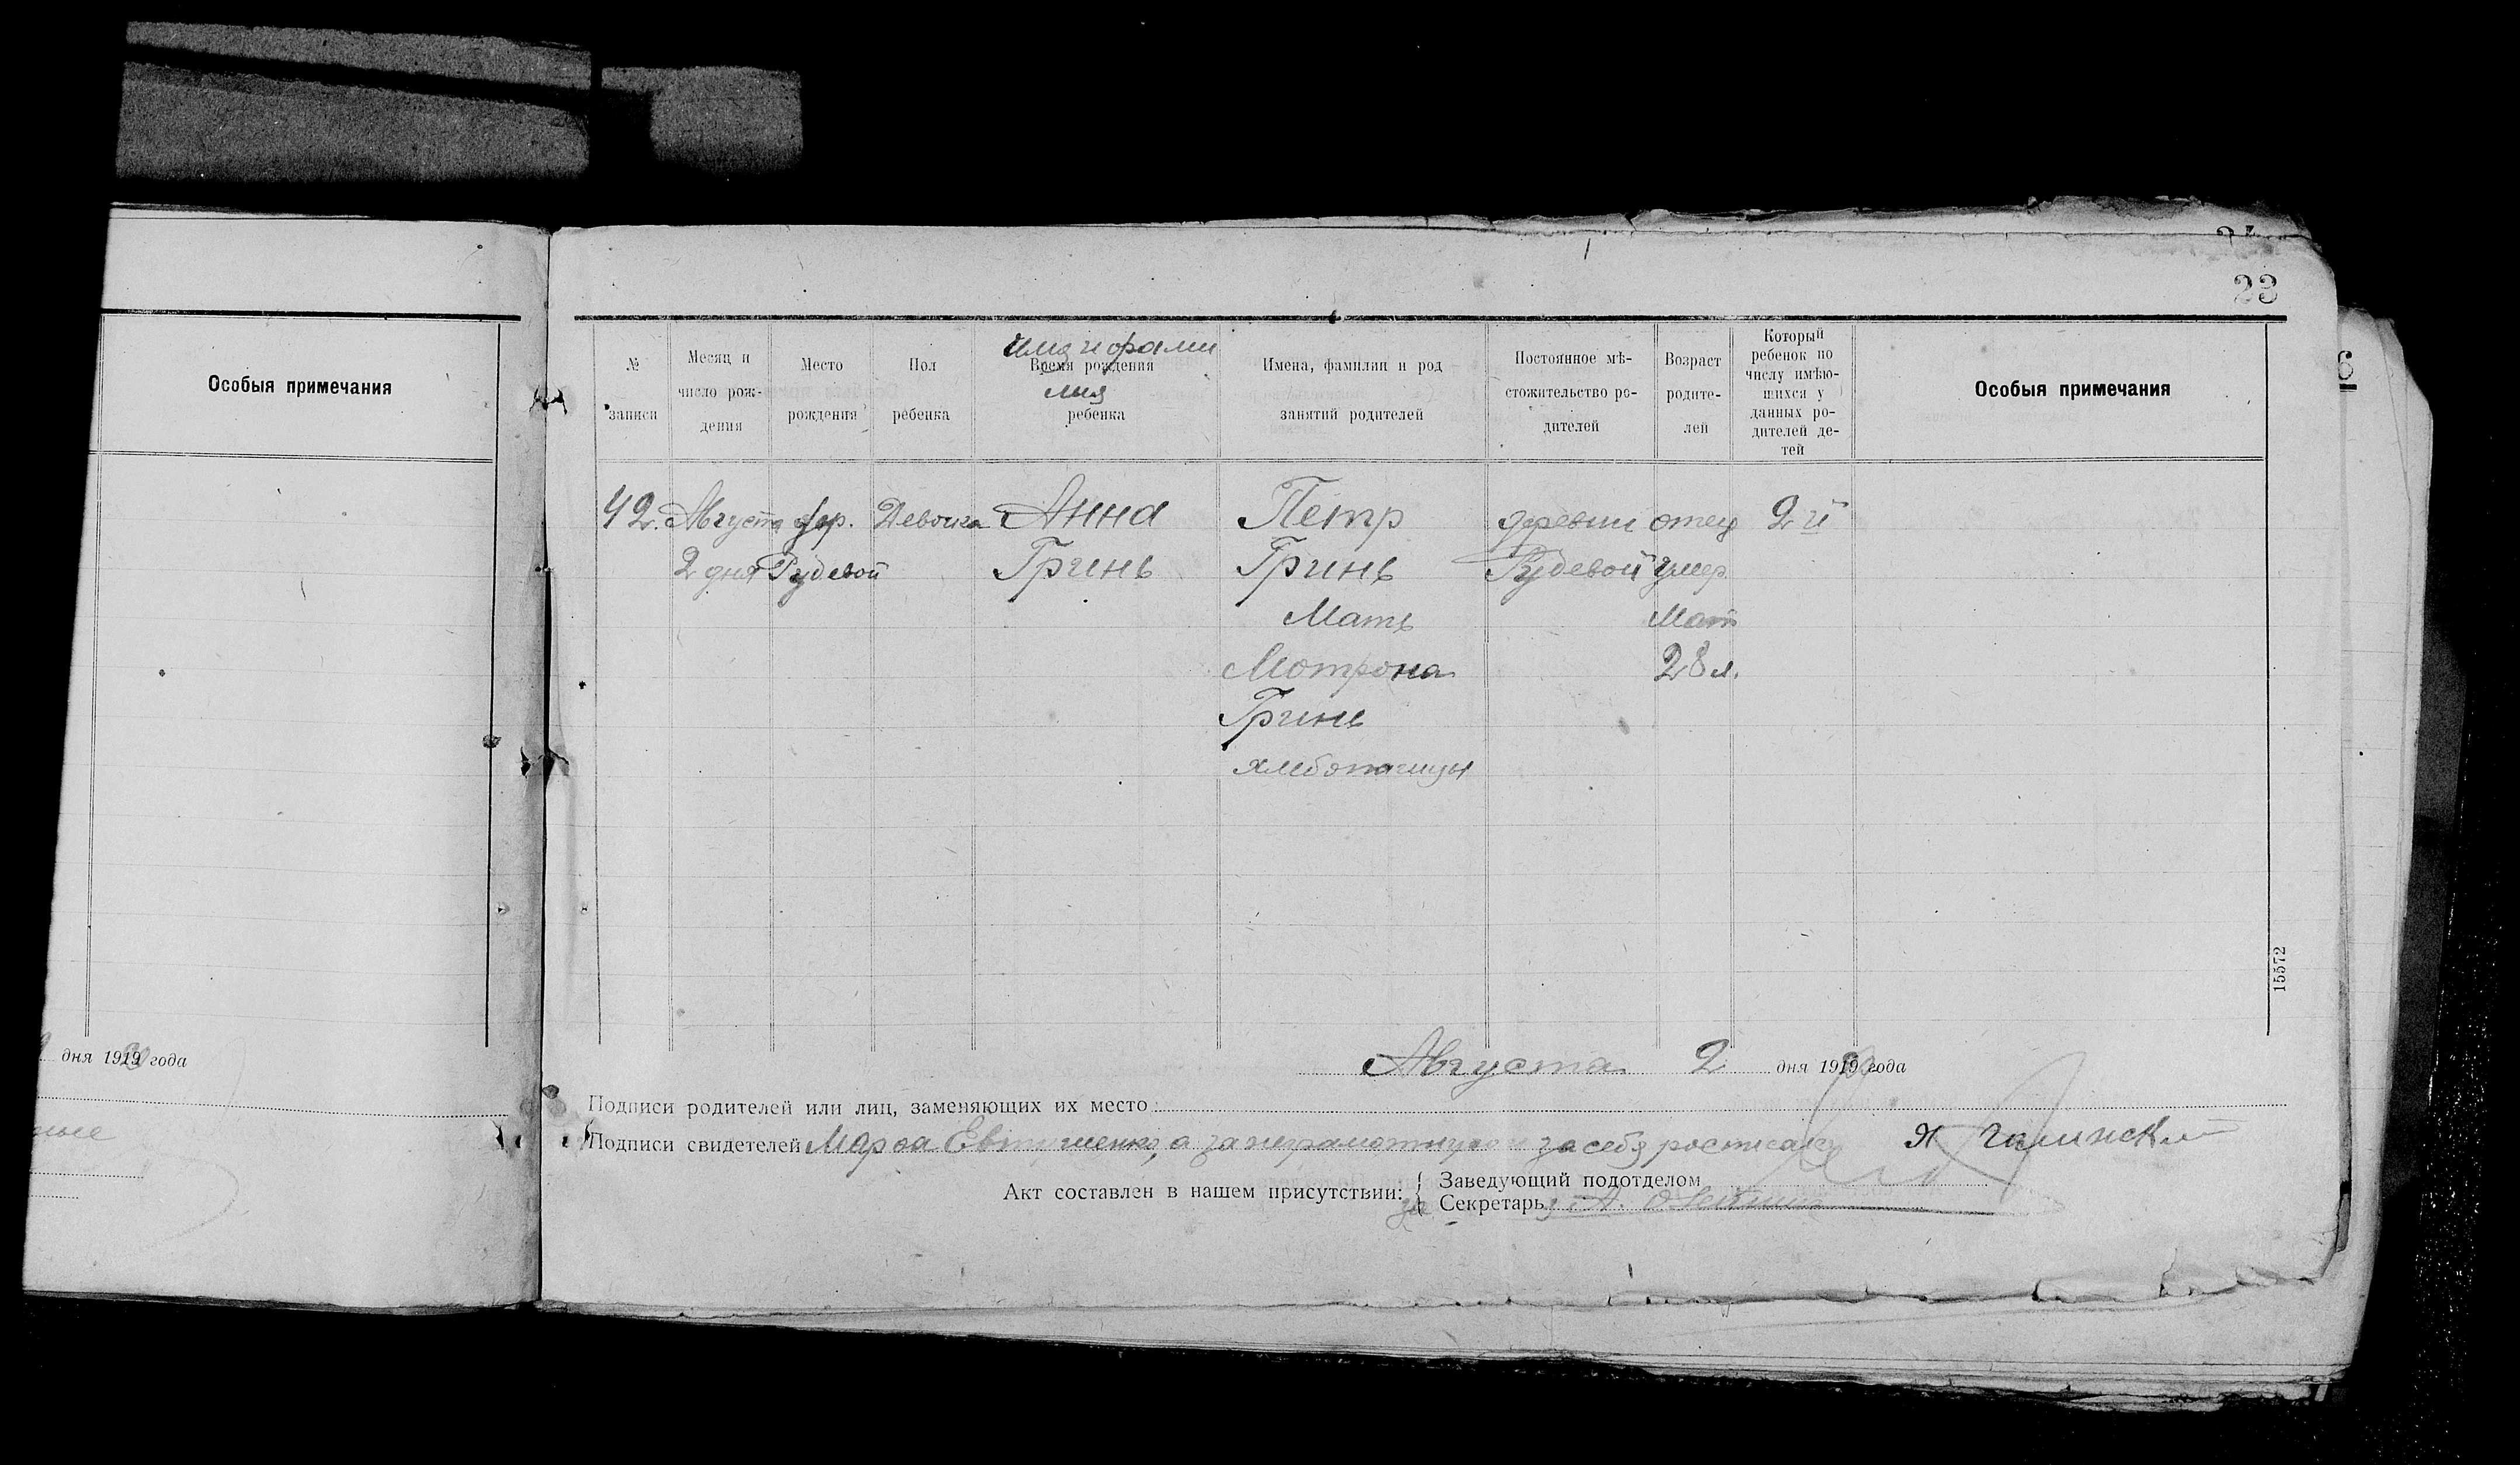 23
Особыя примечания
№ записи
Месяц и число рождения
Место рождения
Пол ребенка
имя и фами
Время рождения
лия
ребенка
Имена, фамилии и род занятий родителей
Постоянное мѣстожительство родителей
Возраст родителей
Который ребенок по числу имѣющихся у данных родителей детей
Особыя примечания
42. Августа дер. Девочка Анна Петр деревни отец 2й
2 дня Рудевой Гринь Гринь Рудевой умер
Мать Мать
Мотрона 28 л.
Гринь
хлебопашцы
15572
дня 1919 года
Августа 2 дня 1919 года
Подписи родителей или лиц, заменяющих их место
Подписи свидетелей Марфа Евтушенко, а за неграмотную и за себя росписался Я Галинский
Акт составлен в нашем присутствии: Заведующий подотделом
за Секретарь А.